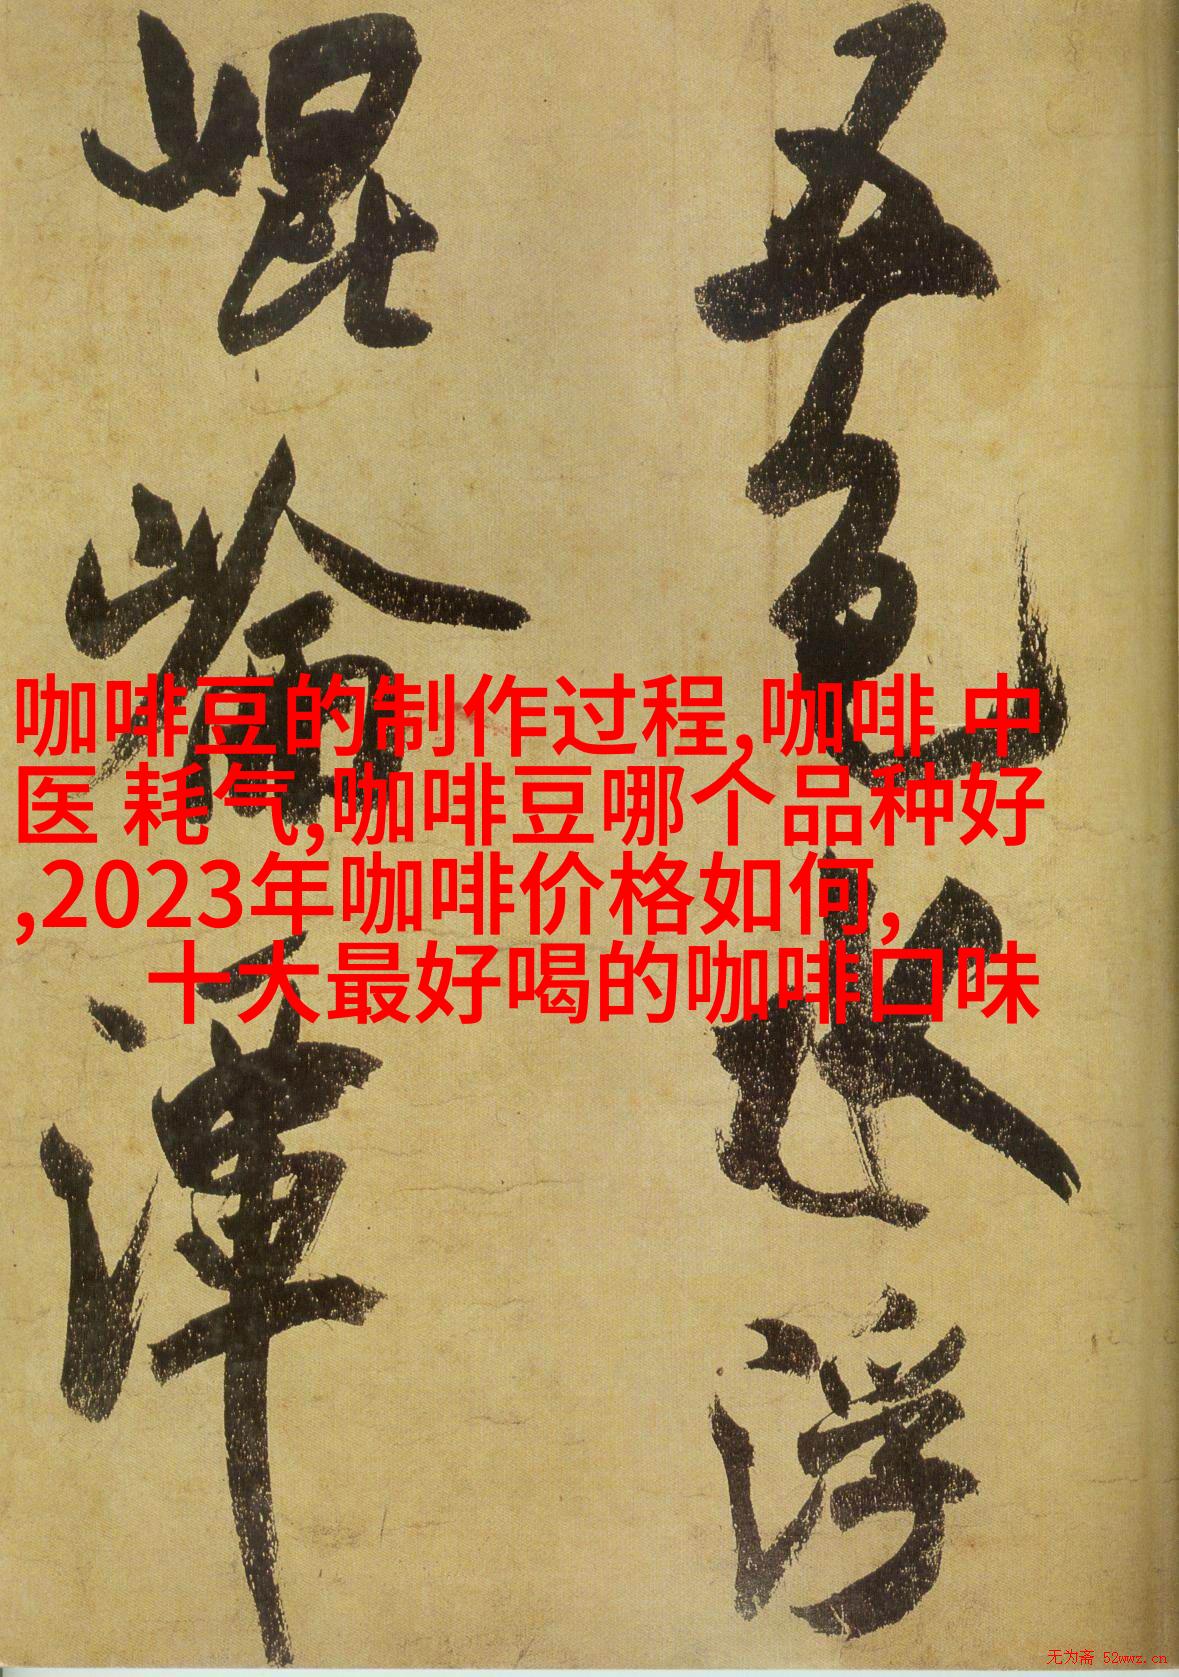 五色水浮
崐崘渾
咖啡豆的制作过程,咖啡 中
医 耗气,咖啡豆哪个品种好
,2023年咖啡价格如何,
十大最好喝的咖啡口味
无为斋 52wwz.cn